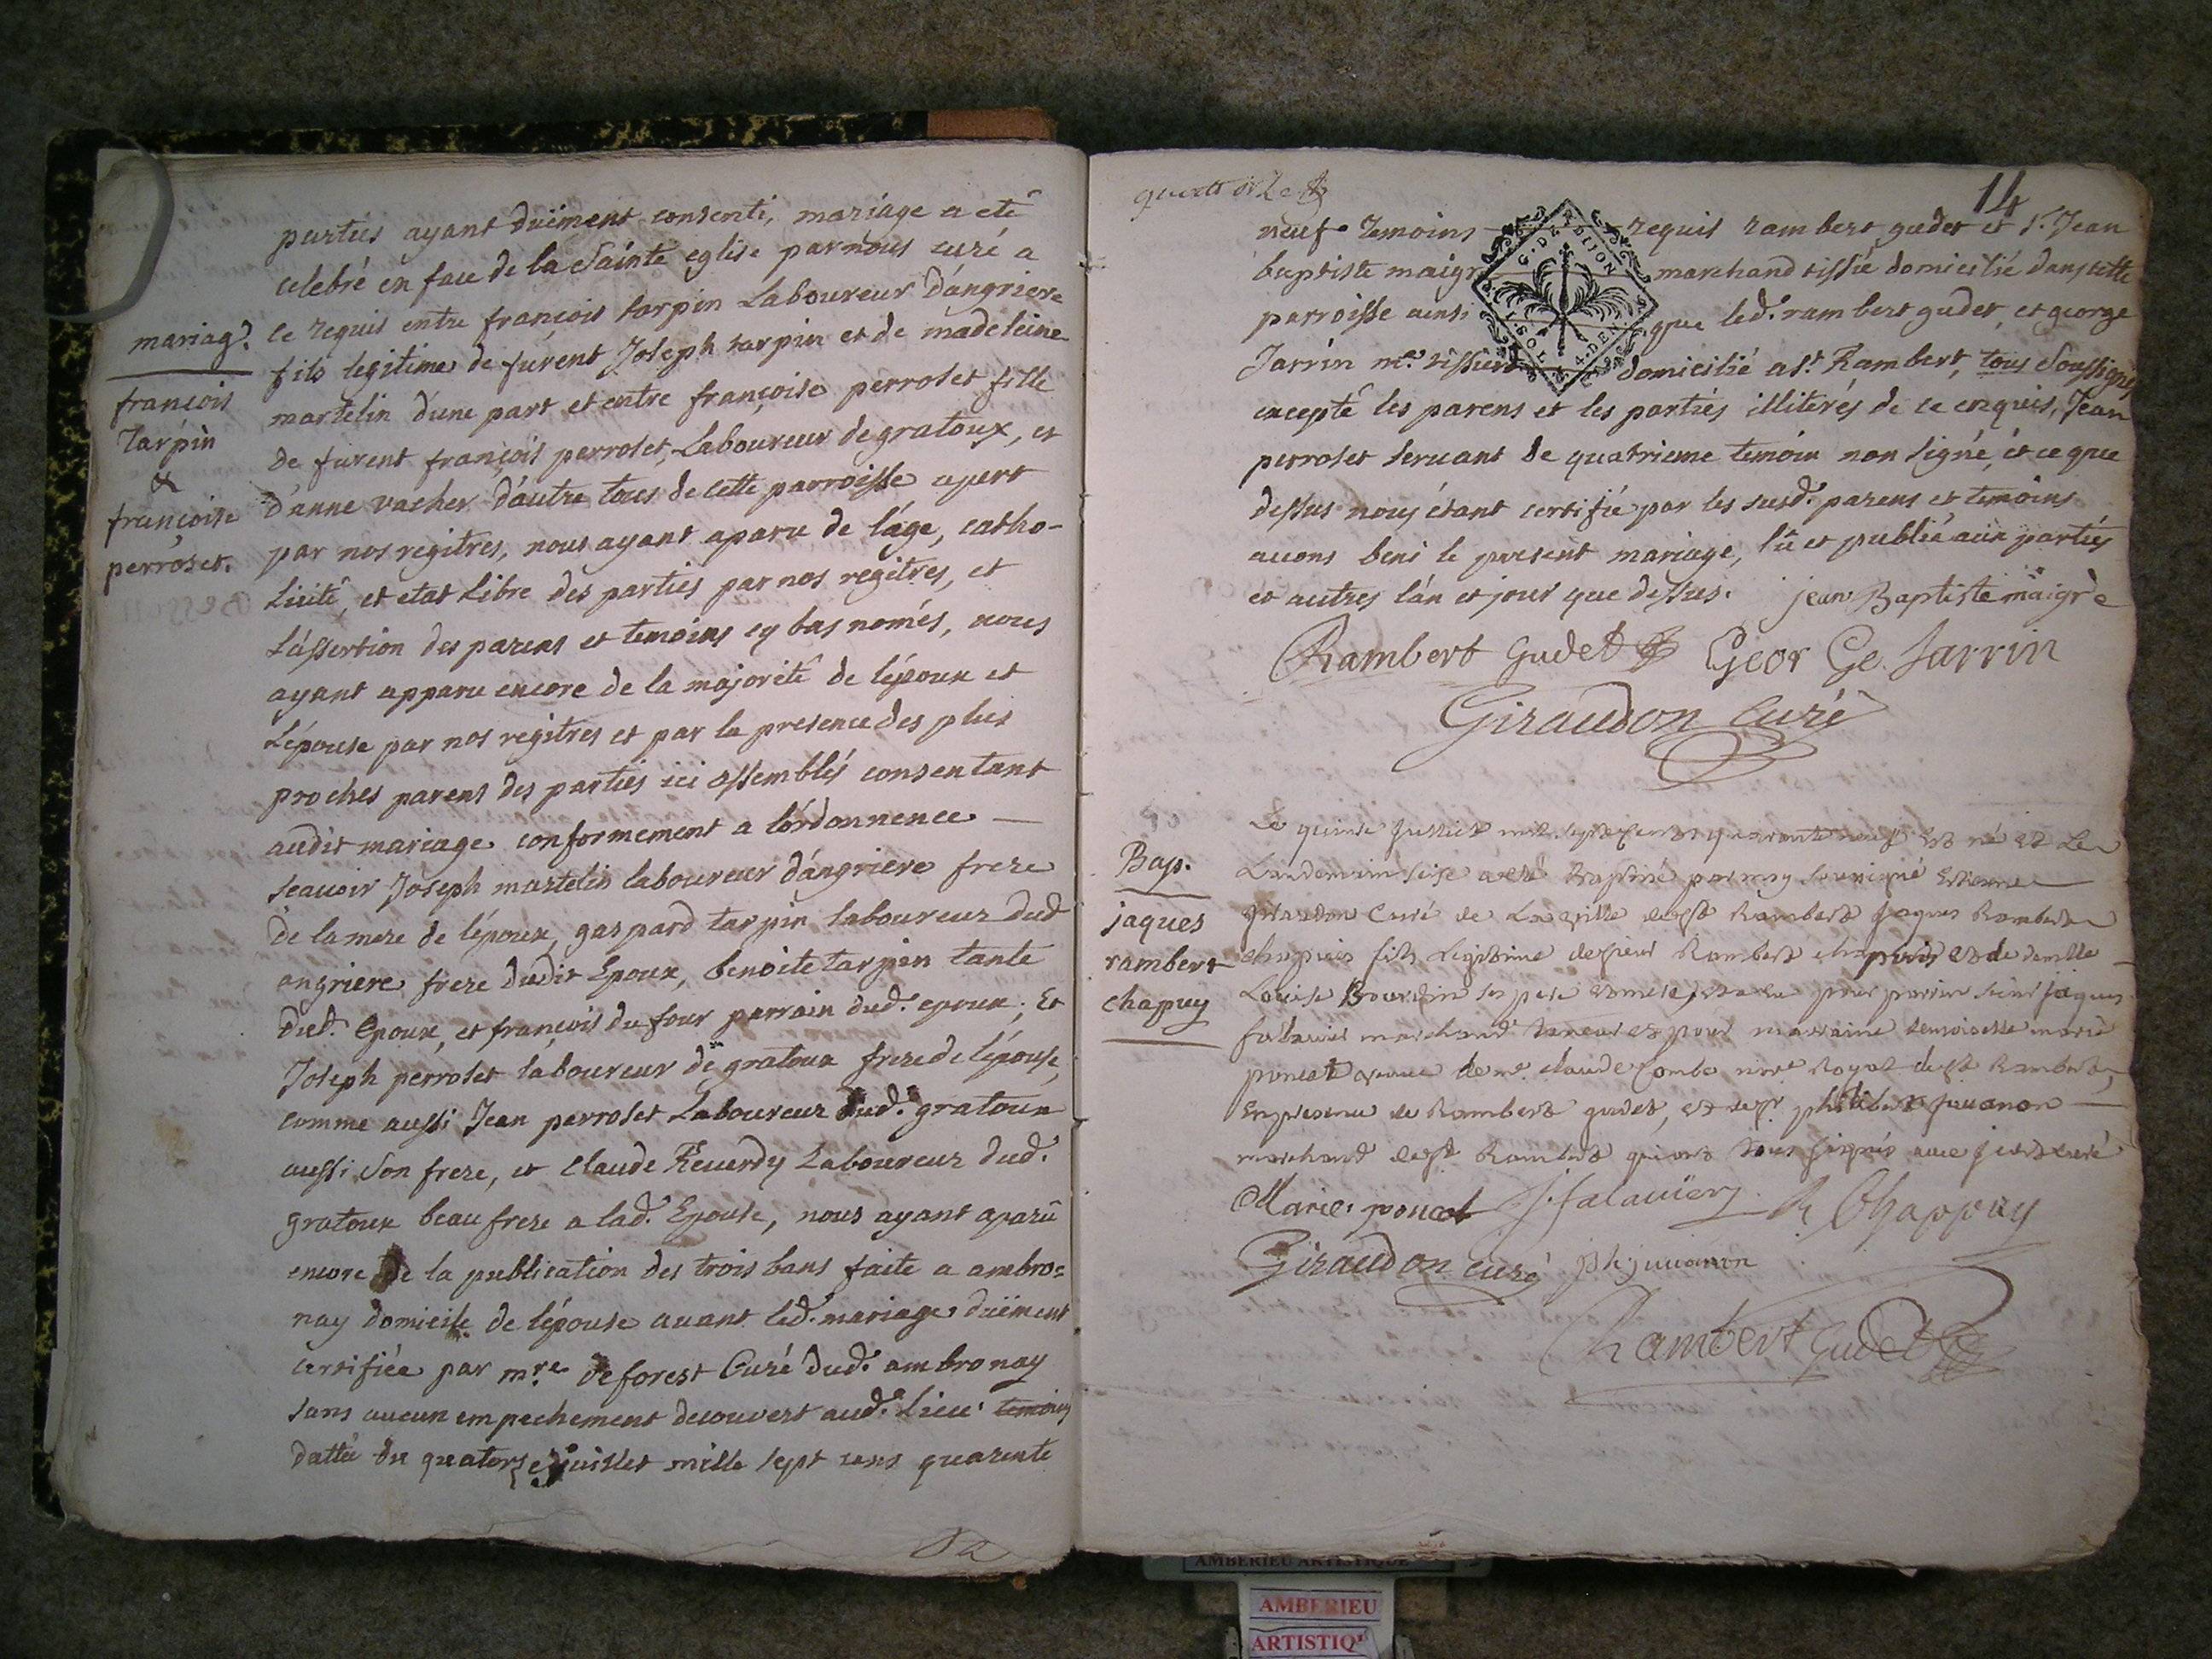 parties ayant düement consenti, mariage a eté
celebré en face de la Sainte eglise par nous curé a
mariag. ce requis entre françois tarpin Laboureur d'angriere
fils legitime de furent Joseph tarpin et de madeleine
françois
Tarpin
&
françoise
perroset.
martelin d'une part et entre françoise perroset fille
de furent françois perroset, Laboureur de gratoux, et
d'anne vacher d'autre tous de cette parroisse apert
par nos regitres, nous ayant aparu de l'áge, catho-
licité, et etat Libre des parties par nos regitres, et
L'assertion des parens et temoins cy bas només, nous
ayant apparu encore de la majorité de l'époux et
L'épouse par nos regitres et par la presence des plus
proches parens des parties ici assemblés consentant
audit mariage conformement a l'órdonnence —
scauoir Joseph martelin laboureur d'ángriere frere
de la mere de l'époux, gaspard tarpin laboureur dud
angriere frere dudit Epoux, benoite tarpin tante
dud. Epoux, et françois dufour parrain dud. epoux; Et
Joseph perroset laboureur de gratoux frere de l'épouse,
comme aussi Jean perroset Laboureur dud. gratoux
aussi Son frere, et Claude Reuerdy Laboureur dud.
gratoux beau frere a lad. Epouse, nous ayant aparû
encore de la publication des trois bans faite a ambro=
nay domicile de l'épouse auant led. mariage düement
certifiée par mre. deforest Curé dud. ambronay
sans aucun empechement decouvert aud. Lieu temoins
dattée du quatorze juillet mille sept cens quarente
14
neuf. Temoins requis rambert gudet et Sr. Jean
baptiste maigre marchand tissié domicilié dans cette
parroisse ainsi que led. rambert gudet, et george
Jarrin me. tissier domicilié a St. Rambert, tous Soussignés
excepté les parens et les parties illiterés de ce enquis, Jean
perroset seruant de quatrieme temoin non signé, et ce que
dessus nous étant certifié par les susd. parens et temoins
auons beni le present mariage, lû et publié aux parties
et autres l'án et jour que dessus. jean Baptiste maigre
Rambert Gudet Geor Ge. Jarrin
Giraudon Curé
Bap.
jaques
rambert
chapuy
Le quinse Juillet mil sept cents quarante neuf est né et Le
Landemain seise a eté Baptisé par moy soussigné Estienne
Giraudon Curé de La ville de st Rambert Jaques Rambert
chapuis fils Legitime de sieur Rambert chapuis et de demlle
Louise Bourdin ses pere et mere, et a eu pour parrin sieur jaques
falauier marchand taneur et pour marraine demoiselle marie
poncet veuue de me. claude Combe nore. Royal de st Rambert,
En presence de Rambert gudet, et de sr philibert juuanon
marchand de st Rambert qui ont tous signés auec je dt curé
Marie. poncet J. falauier R Chappuy
Giraudon curé ph. juuanon
Rambert Gudet
AMBERIEU ARTISTIQUE
AMBERIEU
ARTISTIQ